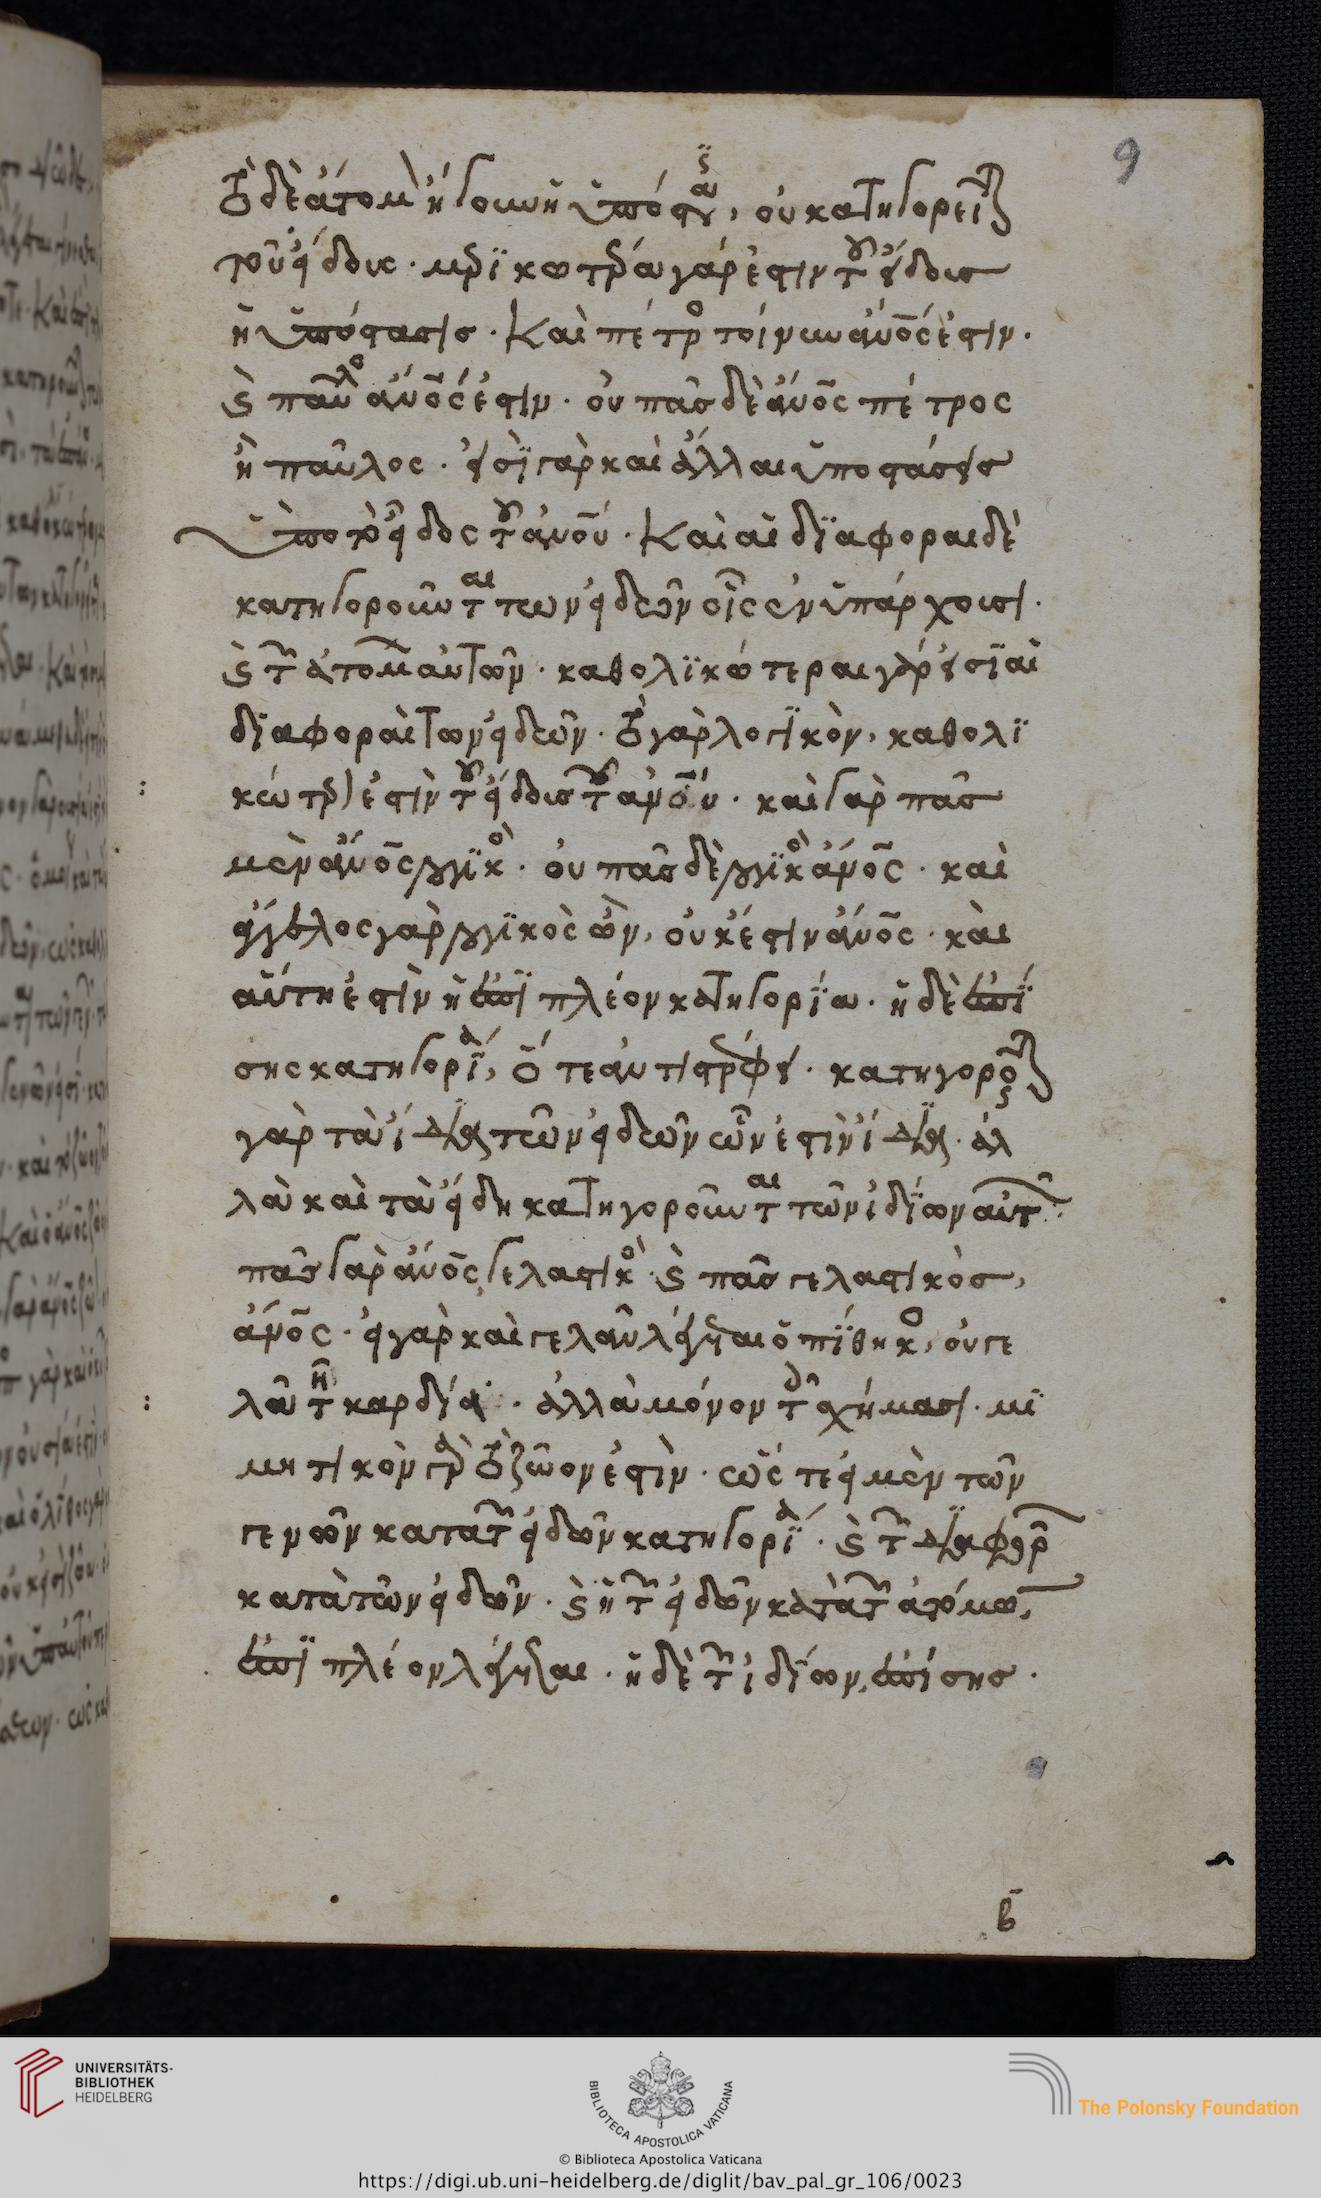 9
τὸ δὲ ἄτομον ἤγουν ἡ ὑπόστασις, οὐ κατηγορεῖται
τοῦ εἴδους· μερικωτέρα γάρ ἐστιν τοῦ εἴδους
ἡ ὑπόστασις. Καὶ πέτρος τοίνυν ἄνος ἐστιν.
καὶ παῦλος ἄνος ἐστιν. οὐ πᾶς δὲ ἄνος πέτρος
ἢ παῦλος. εἰσὶ γὰρ καὶ ἄλλαι ὑποστάσεις
ὑπὸ τὸ εἶδος τοῦ ἀνου. Καὶ αἱ διαφοραι δὲ
κατηγοροῦνται των εἰδῶν οἷς ἐνυπάρχουσι.
καὶ τῶν ἀτόμων αὐτῶν. καθολικώτεραι γάρ εἰσι αἱ
διαφοραὶ των εἰδῶν. τὸ γὰρ λογικὸν, καθολι
κώτερόν ἐστὶν τοῦ εἴδους τοῦ ἀνου. καὶ γὰρ πᾶς
μὲν ἄνος λογικὸς. οὐ πᾶς δὲ λογικὸς ἄνος. καὶ
ἄγγελος γὰρ λογικὸς ὢν, οὐκ ἔστιν ἄνος. καὶ
αὕτη ἐστὶν ἡ ἐπὶ πλέον κατηγορία. ἡ δὲ ἐπί
σης κατηγορία, ὅτε ἀντιστρέφει. κατηγοροῦνται
γὰρ τὰ ἴδια τῶν εἰδῶν ὧν ἐστὶν ἴδια. ἀλ
λὰ καὶ τὰ εἴδη κατηγοροῦνται τῶν ἰδίων αὐτῶν.
πᾶς γὰρ ἄνος γελαστικὸς. καὶ πᾶς γελαστικὸς,
ἄνος. εἰ γὰρ καὶ γελᾶν λέγεται ὁ πίθηκος, οὐ γε
λᾶ τῆ καρδία. ἀλλὰ μόνον τοῖς σχήμασι. μι
μητικὸν γὰρ τὸ ζῶον ἐστὶν. ὥστε ἡ μὲν τῶν
γενῶν κατὰ τῶν εἰδῶν κατηγορία. καὶ τῶν διαφορῶν
κατὰ τῶν εἰδῶν. καὶ ἡ τῶν εἰδῶν κατὰ τῶν ἀτόμων,
ἐπὶ πλέον λέγεται. ἡ δὲ τῶν ἰδίων, ἐπίσης.
β
UNIVERSITÄTS-
BIBLIOTHEK
HEIDELBERG
BIBLIOTECA APOSTOLICA VATICANA
The Polonsky Foundation
© Biblioteca Apostolica Vaticana
https://digi.ub.uni-heidelberg.de/diglit/bav_pal_gr_106/0023